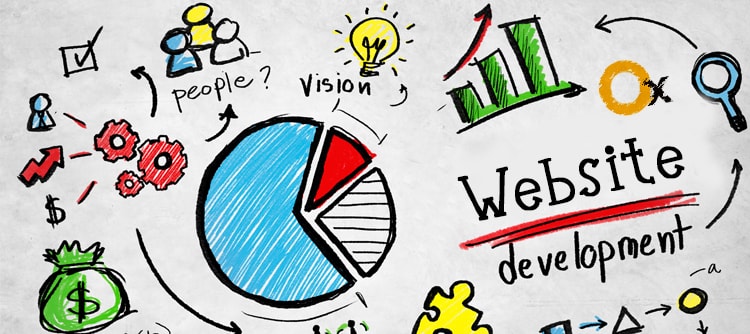 people?
Vision
Ox
Website
development
$
$
a